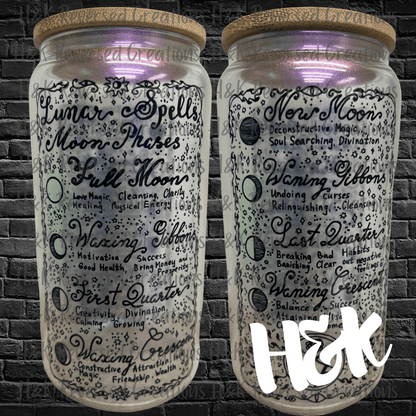 Lunar Spells
Moon Phases
Full Moon
Love Magic, Cleansing, Clarity
Healing Mysical Energy
Waxing Gibbons
Motivation Success
Good Health, Bring Money and
Prosperity
First Quarter
Creativity Divination,
Calming Growing
Waxing Crescent
Constructive Attraction, Luck
Magic Friendship, Wealth
New Moon
Deconstructive Magic,
Soul Searching, Divination
Waning Gibbons
Undoing Curses
Relinquishing, Cleansing
Last Quarter
Breaking Bad Habbits
Banishing, Clear out negative
feelings
Waning Crescen
Balance Success
Attaining
H&K